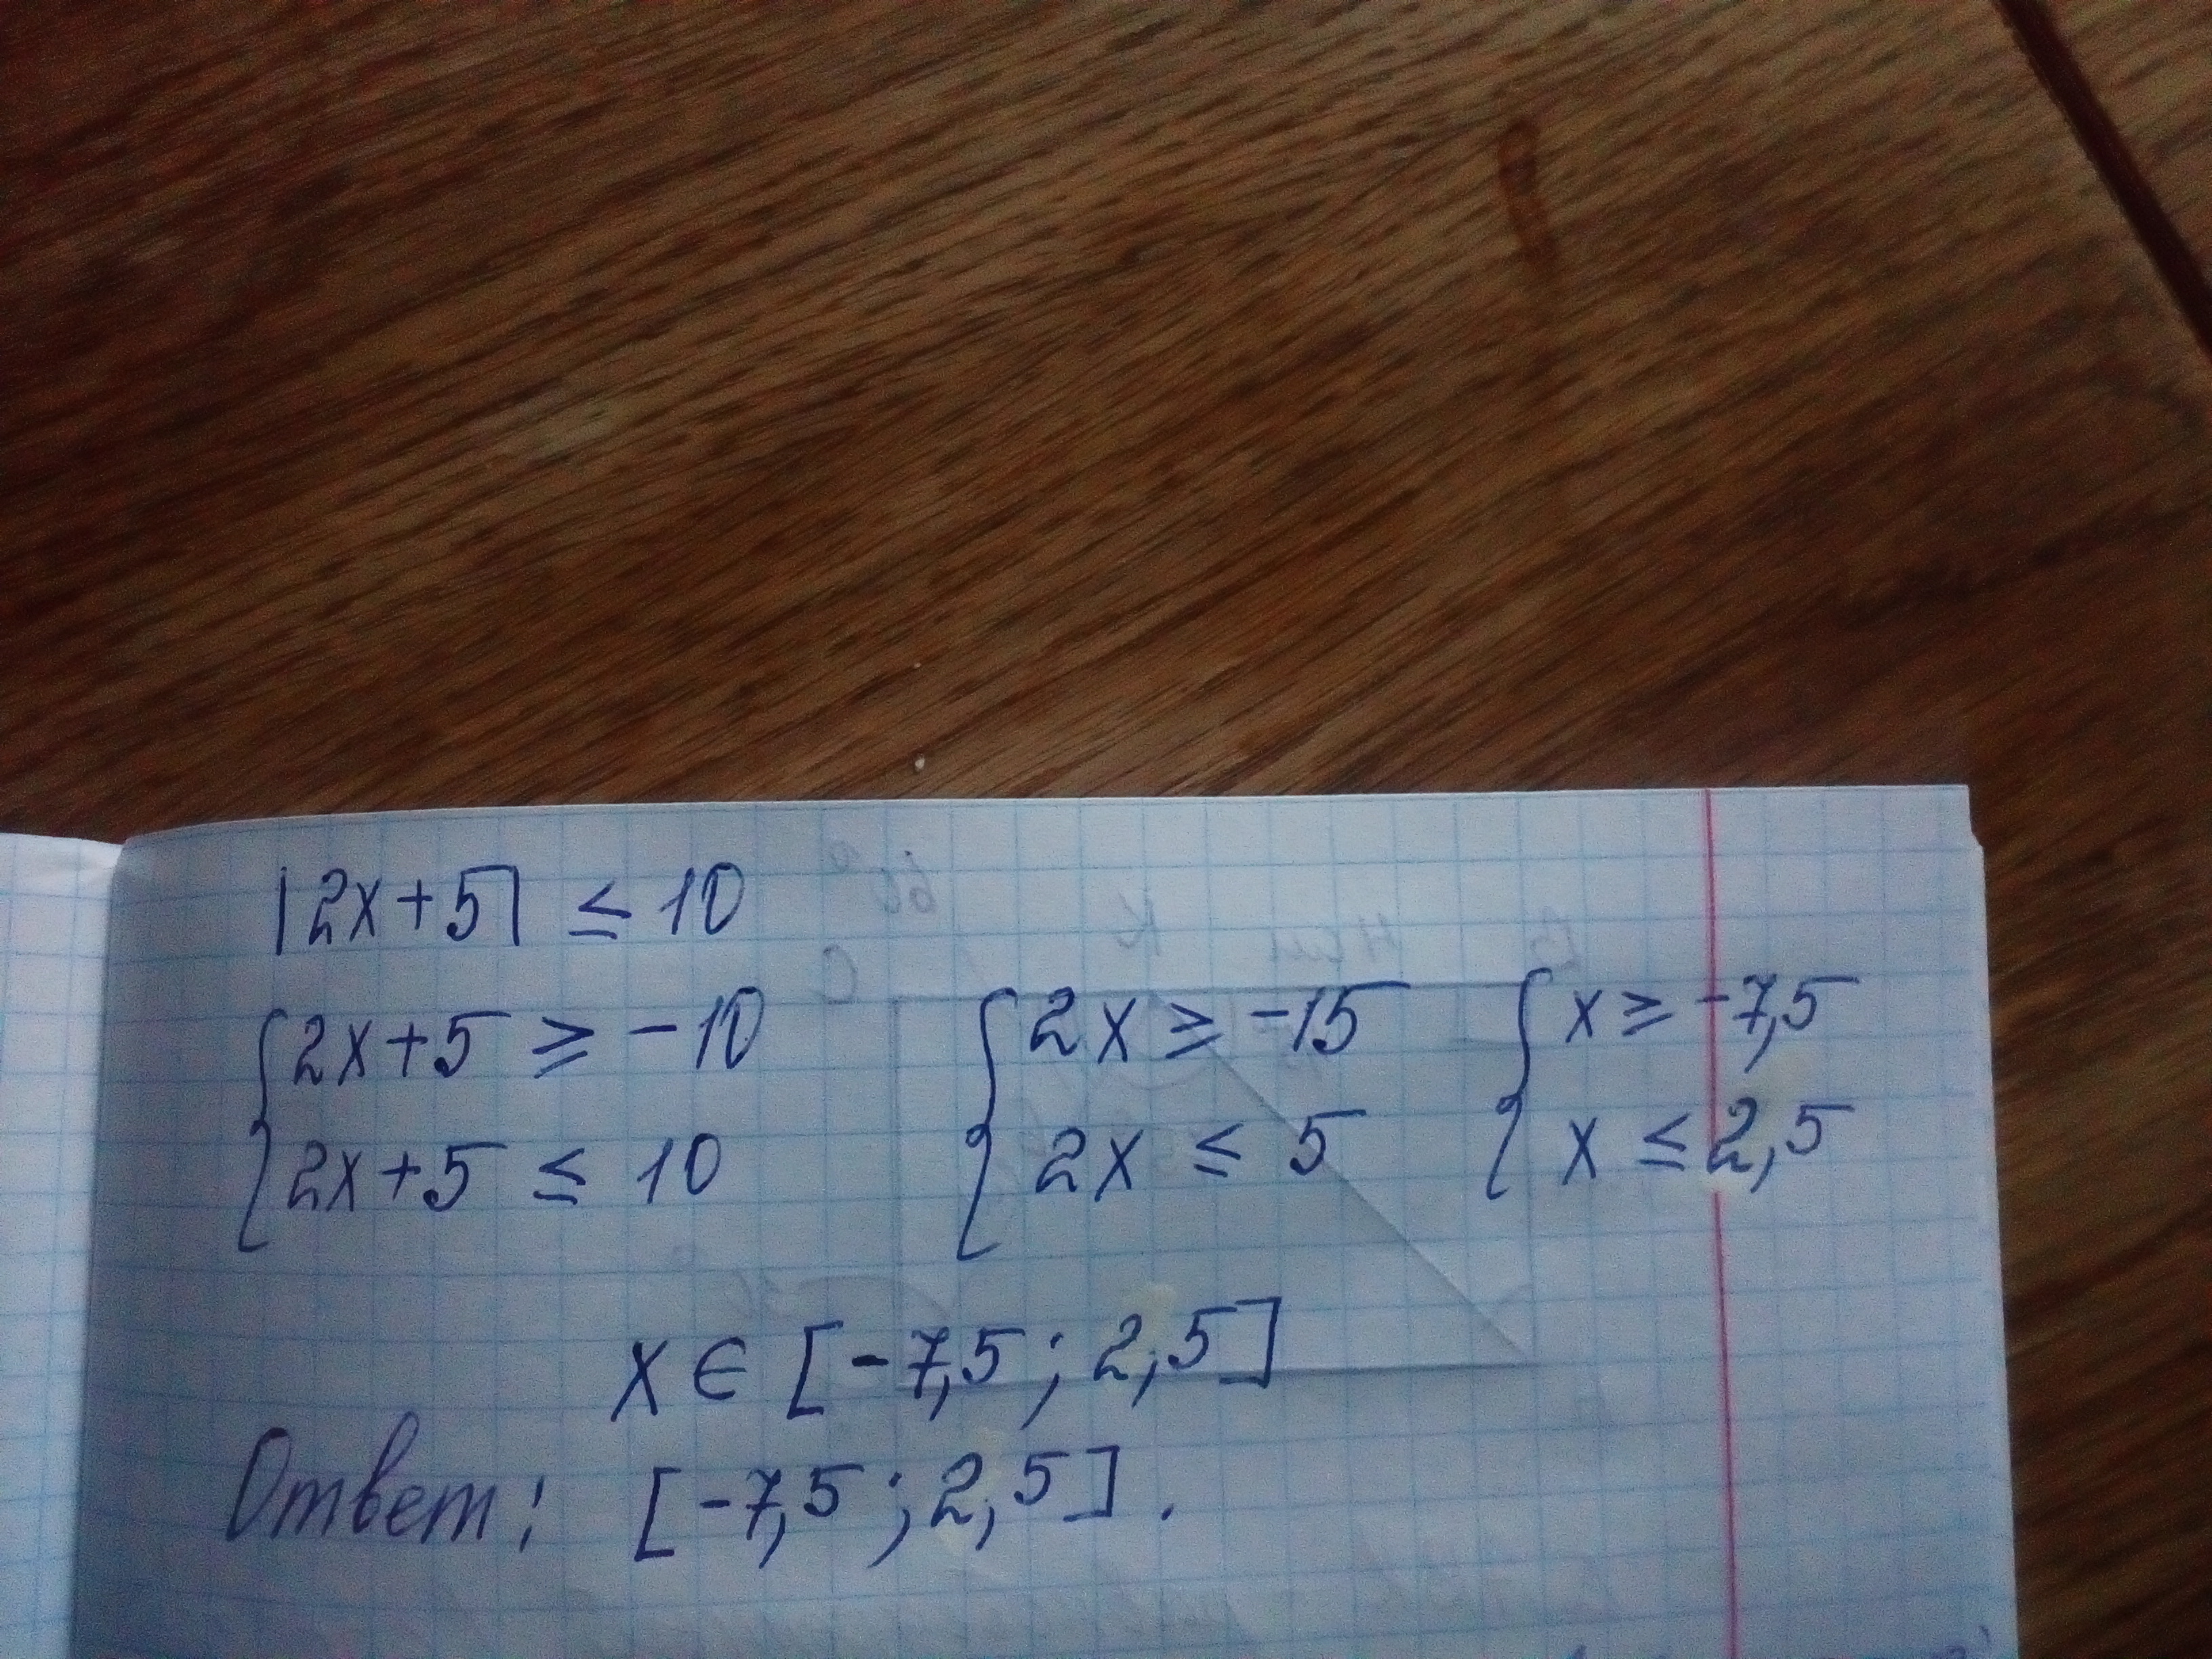 |2x+5| ≤ 10
{2x+5 ≥ -10 {2x ≥ -15 {x ≥ -7,5
2x+5 ≤ 10 2x ≤ 5 x ≤ 2,5
x ∈ [-7,5; 2,5]
Ответ: [-7,5; 2,5].